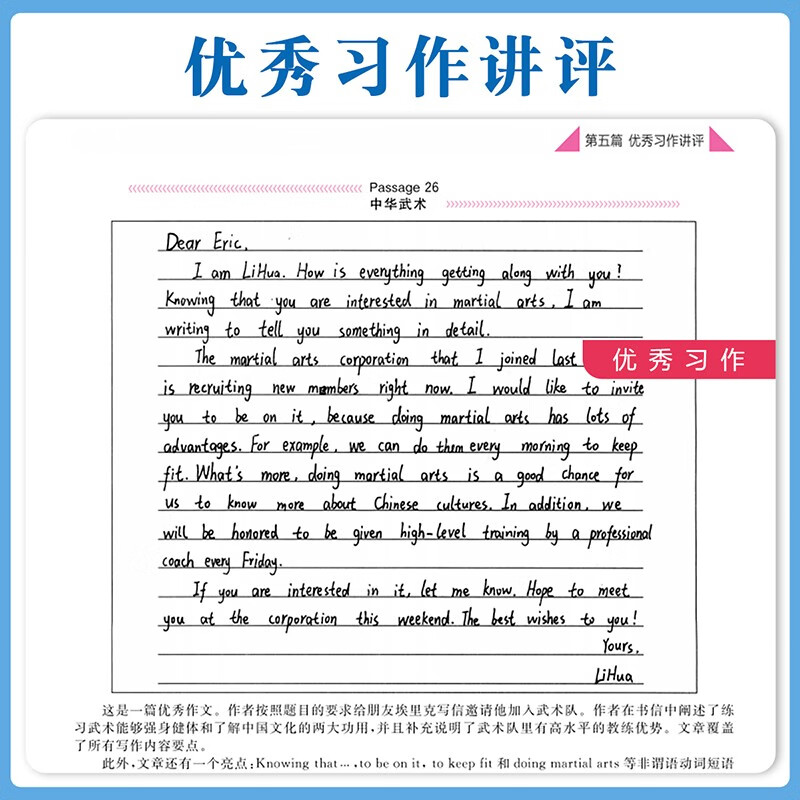 优秀习作讲评
第五篇 优秀习作讲评
Passage 26
中华武术
Dear Eric,
I am LiHua. How is everything getting along with you?
Knowing that you are interested in martial arts, I am
writing to tell you something in detail.
The martial arts corporation that I joined last
优秀习作
is recruiting new members right now. I would like to invite
you to be on it, because doing martial arts has lots of
advantages. For example, we can do them every morning to keep
fit. What's more, doing martial arts is a good chance for
us to know more about Chinese cultures. In addition, we
will be honored to be given high-level training by a professional
coach every Friday.
If you are interested in it, let me know. Hope to meet
you at the corporation this weekend. The best wishes to you!
Yours,
LiHua
这是一篇优秀作文。作者按照题目的要求给朋友埃里克写信邀请他加入武术队。作者在书信中阐述了练
习武术能够强身健体和了解中国文化的两大功用，并且补充说明了武术队里有高水平的教练优势。文章覆盖
了所有写作内容要点。
此外，文章还有一个亮点：Knowing that …，to be on it，to keep fit 和 doing martial arts 等非谓语动词短语